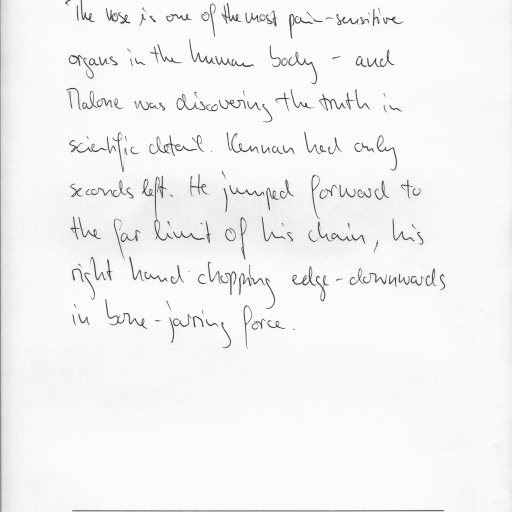 The nose is one of the most pain-sensitive
organs in the human body - and
Malone was discovering the truth in
scientific detail. Kennan had only
seconds left. He jumped forward to
the far limit of his chain, his
right hand chopping edge-downwards
in bone-jarring force.